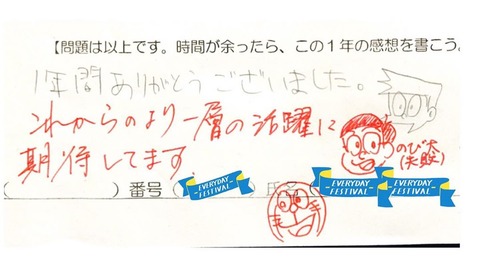 【問題は以上です。時間が余ったら、この1年の感想を書こう。
1年間ありがとうございました。
これからのより一層の活躍に
期待してます。
のび太
(失敗)
(　　　　) 番号 (　　　　) 氏名
EVERYDAY
FESTIVAL
EVERYDAY
FESTIVAL
EVERYDAY
FESTIVAL